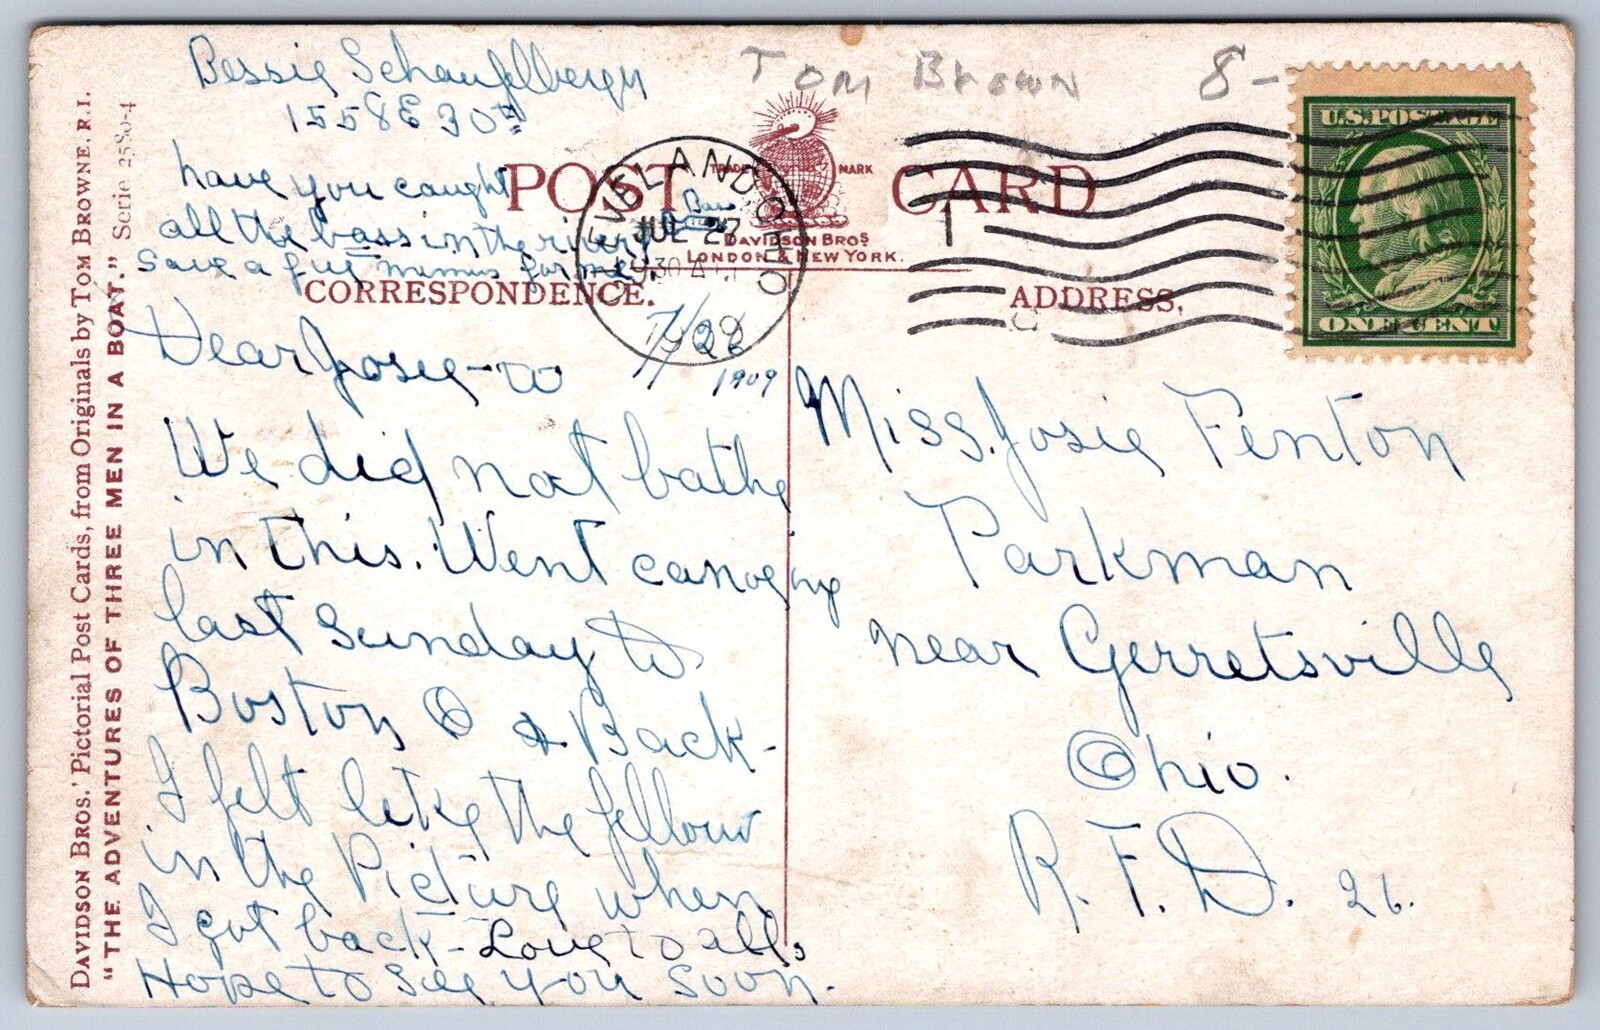 Bessie Schaufelbergn
1558 E 30th
Tom Brown 8-
have you caught
all the bass in the river
save a few for me.
Bass
POST CARD
TRADE MARK
DAVIDSON BROS
LONDON & NEW YORK.
CLEVELAND OHIO
JUL 27
1909
U.S. POSTAGE
ONE CENT
CORRESPONDENCE.
ADDRESS.
7/26
1909
Dear Josie -
We did not bathe
in this. Went canoeing
last Sunday to
Boston O & Back -
I felt like the fellow
in the Picture when
I got back - Love to all,
Hope to see you soon.
Miss. Josie Fenton
Parkman
near Gerretsville
Ohio.
R. F. D. 26.
DAVIDSON BROS.' Pictorial Post Cards, from Originals by TOM BROWNE, R.I.
"THE ADVENTURES OF THREE MEN IN A BOAT." Serie 2580-4